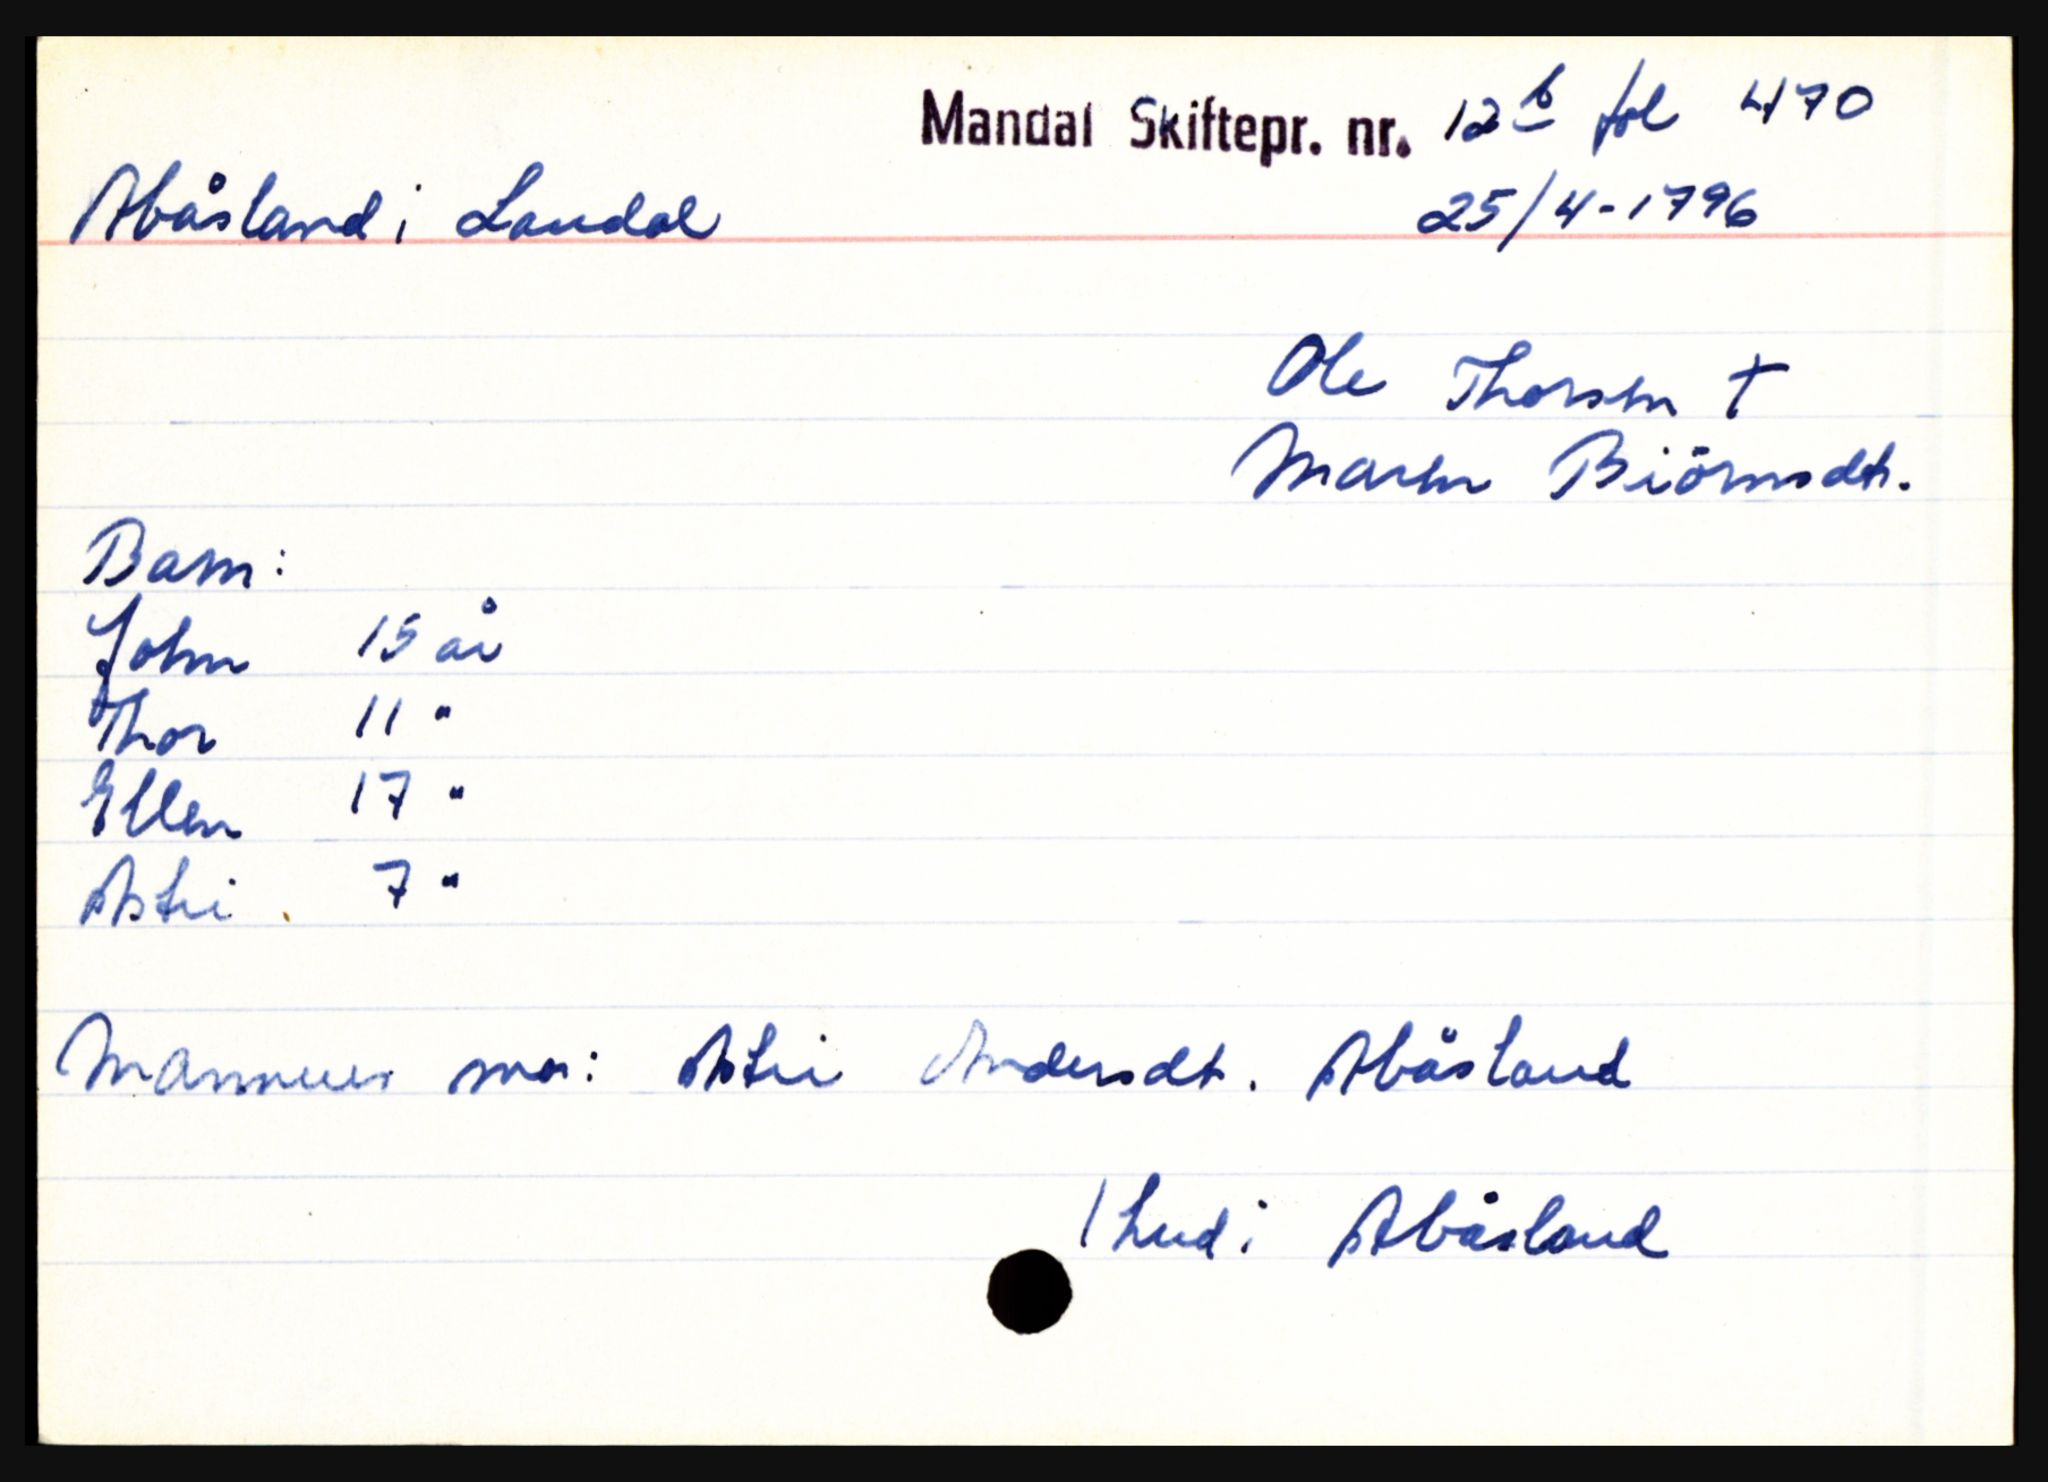 Mandal Skiftepr. nr. 12 b fol 470
Abåsland i Laudal 25/4-1796
Ole Thorsen †
Maren Biörnsdtr.
Barn:
John 15 år
Thor 11 "
Ellen 17 "
Astri 7 "
Mannens mor: Astri Andersdtr. Abåsland
1 hud i Abåsland